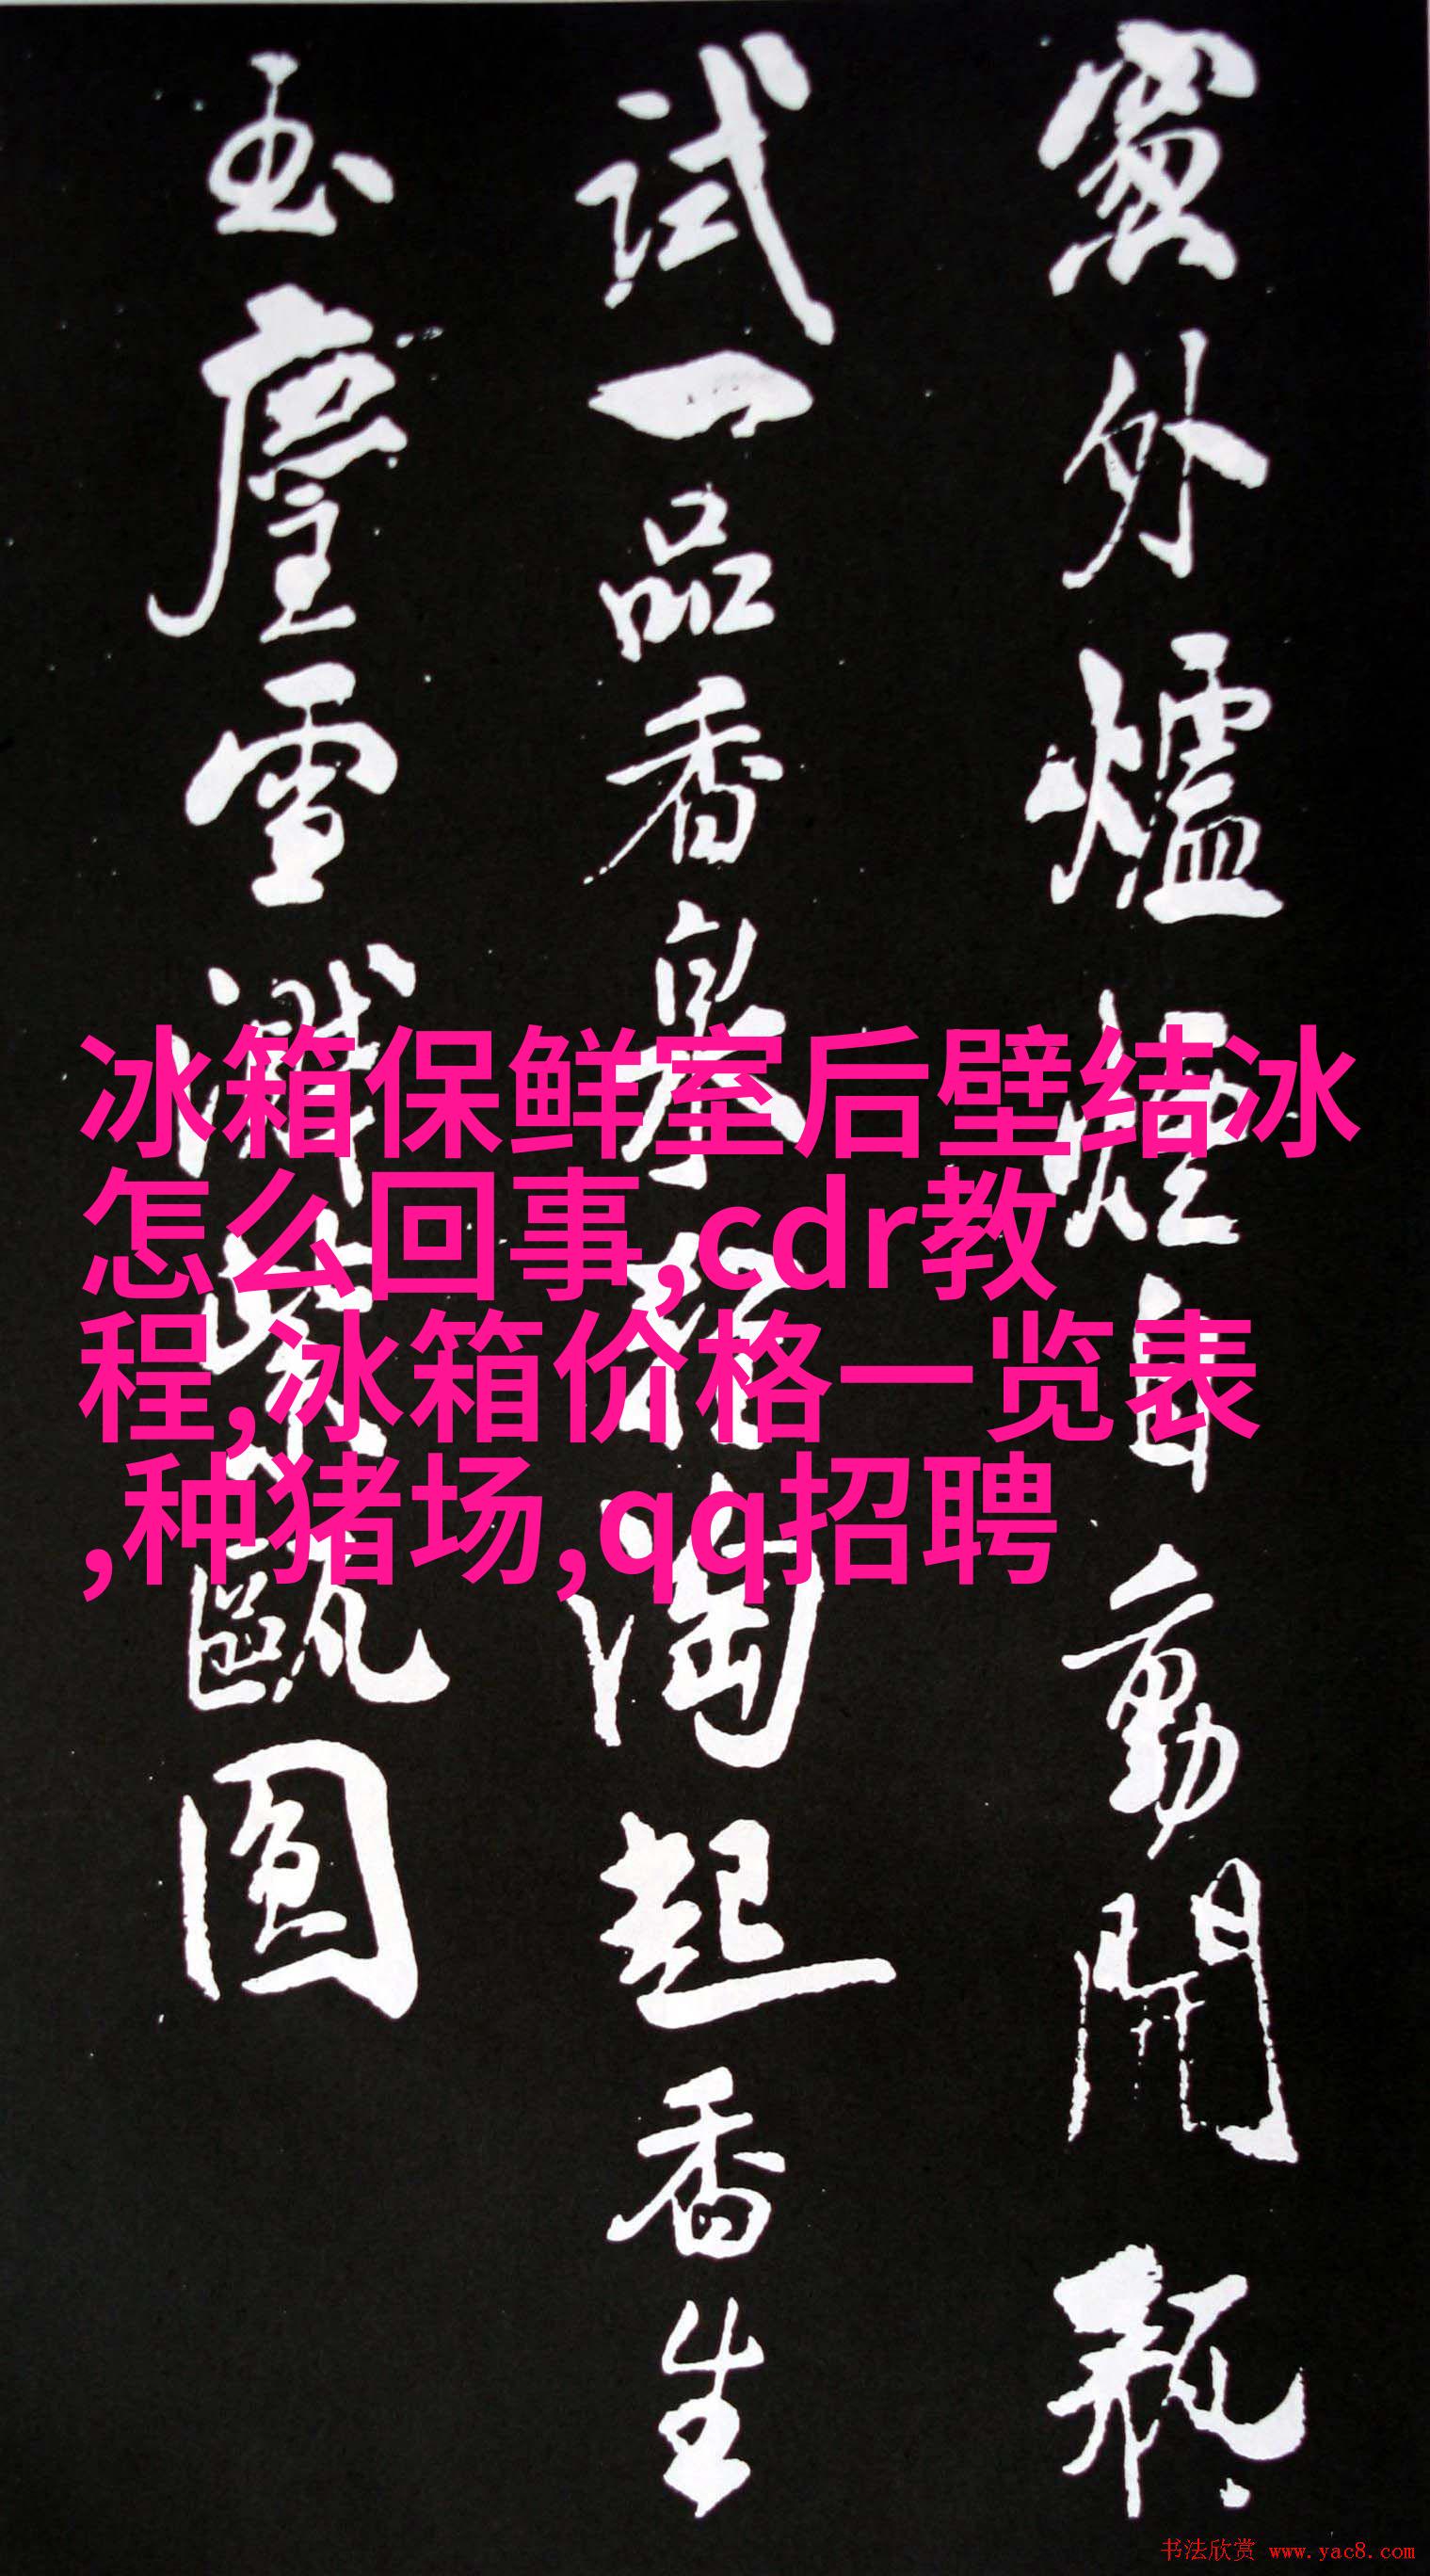 窻外爐煙自動開瓶
試一品香泉輕淘起香生
玉塵雪濺紫甌圓
冰箱保鲜室后壁结冰
怎么回事,cdr教
程,冰箱价格一览表
,种猪场,qq招聘
书法欣赏 www.yac8.com